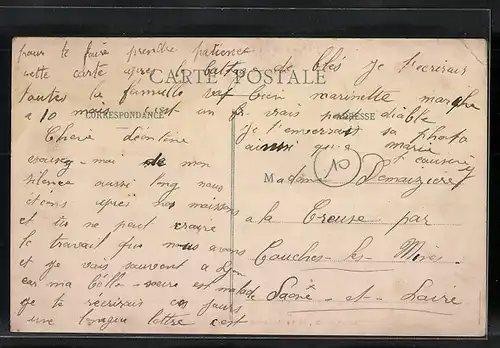 pour te faire prendre patience
cette carte après battage de blés je t'écrirais
CARTE POSTALE
toutes la famille va bien marinette marche
a 10 mois c'est un vrais petit diable
CORRESPONDANCE
ADRESSE
je t'enverrais sa photo
aussi qu'a marie
Chère Léontine
excusez-moi de mon
silence aussi long nous
étions après nos moissons
et tu ne peut croire
le travail que nous avons
et je vais souvent a
car ma belle-soeur est malade
je te récrirais ces jours
une longue lettre c'est
10
Madame Demaizière
a la Creuse par
Couches-les-Mines
Saône-et-Loire